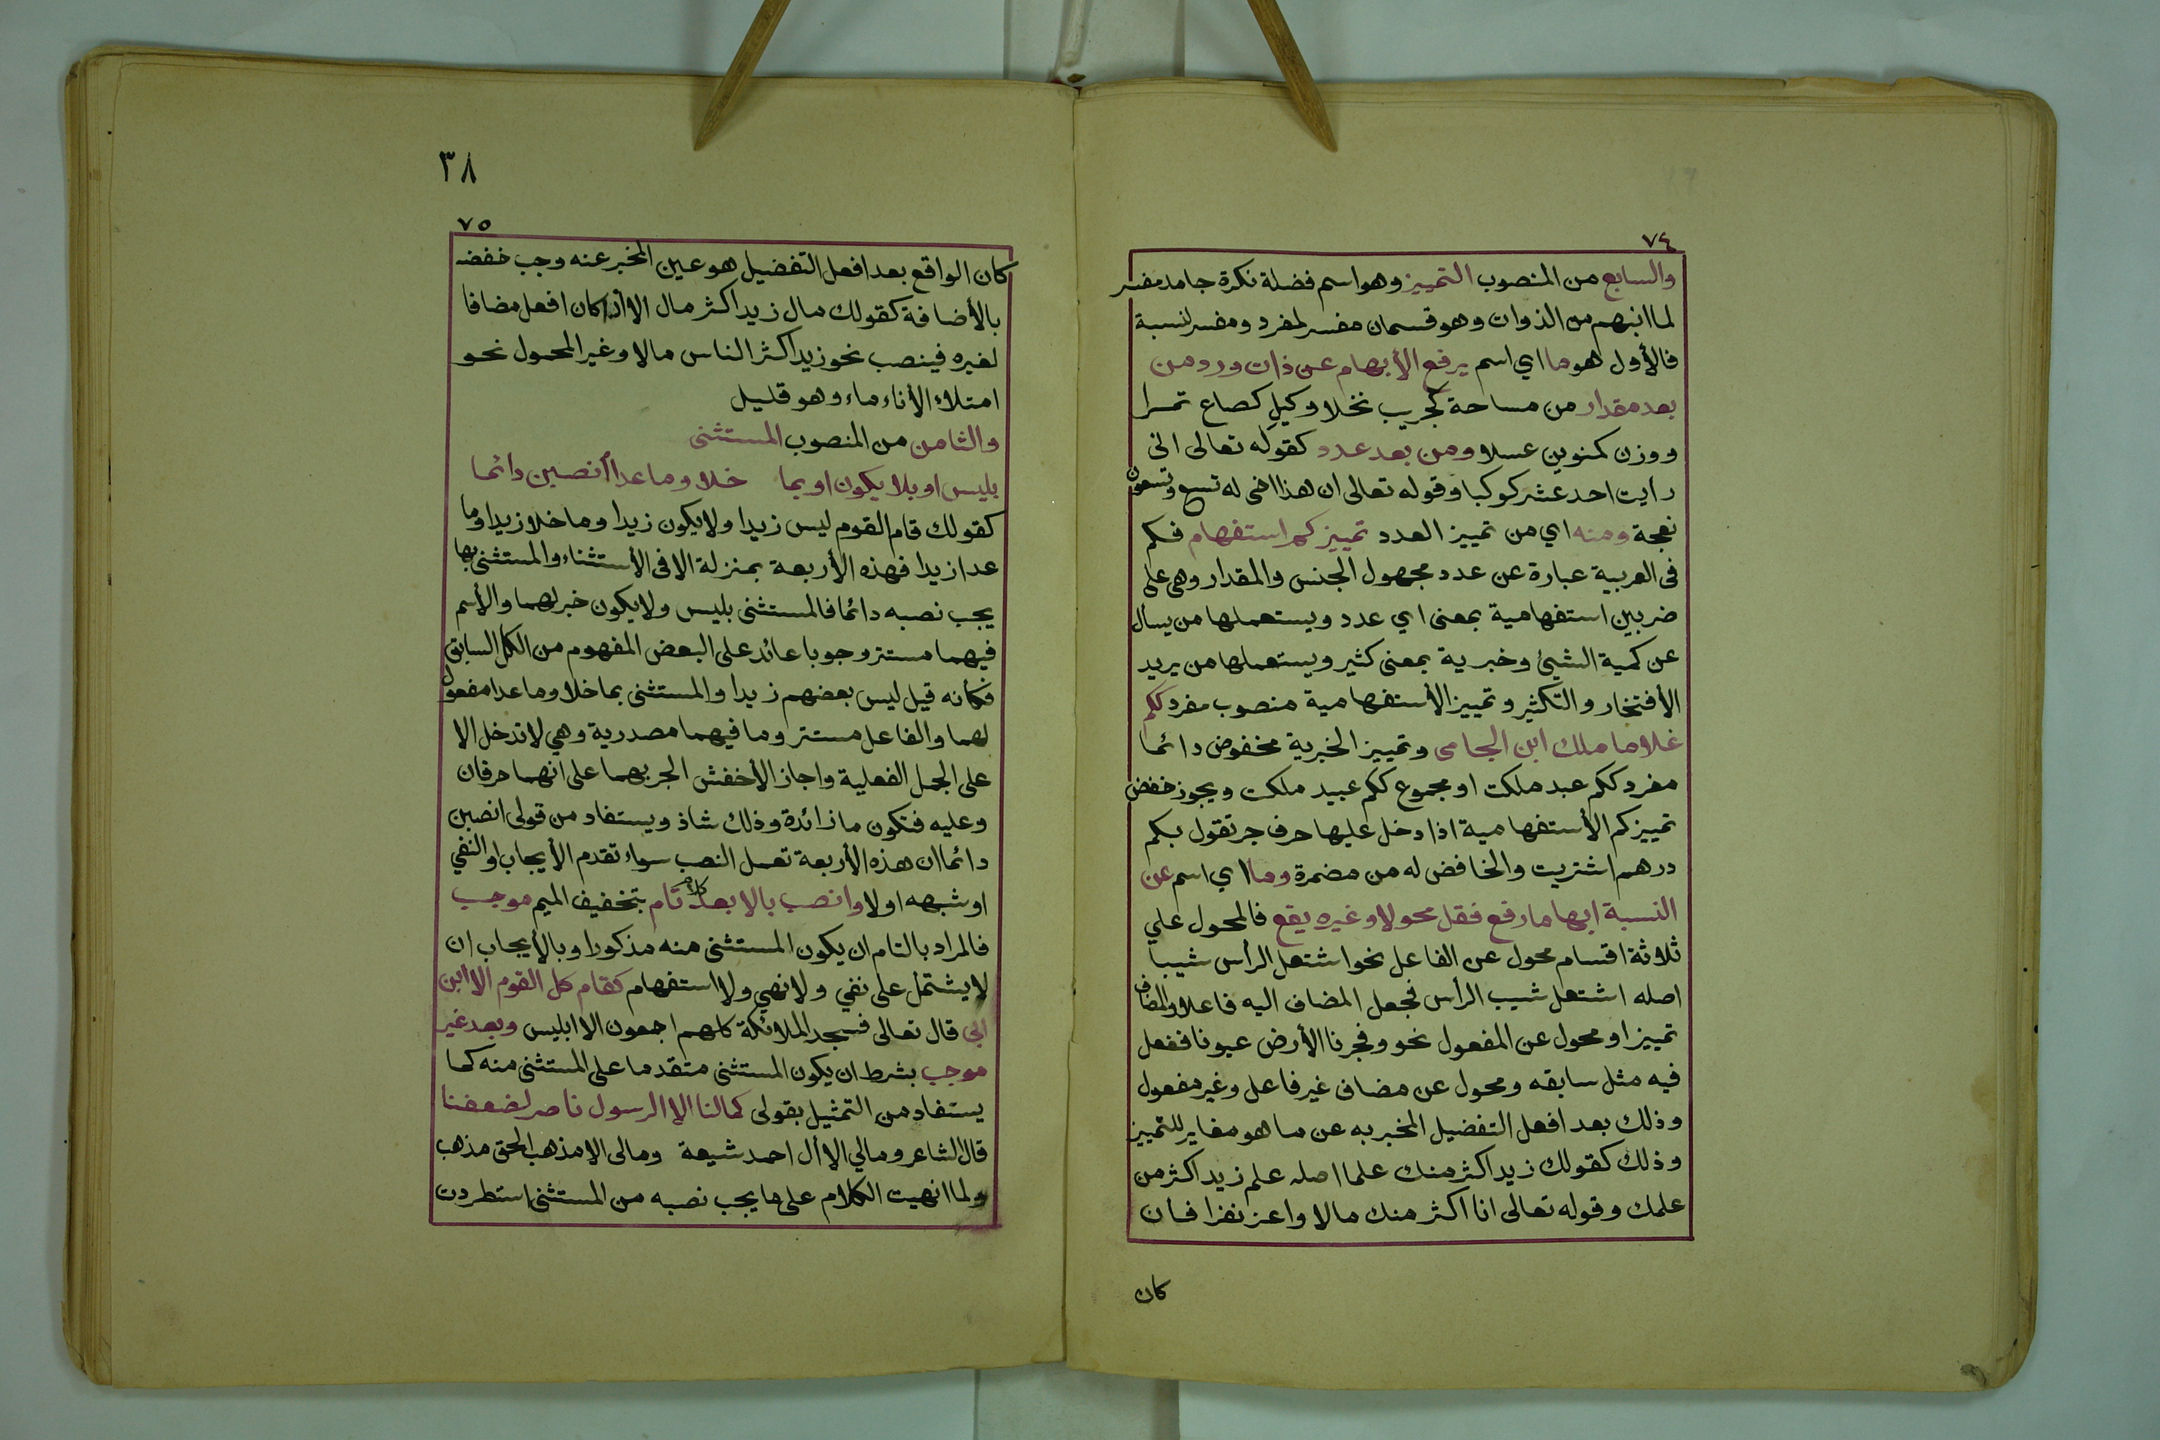 ٧٤
والسابع من المنصوب التمييز وهو اسم فضلة نكرة جامد مفسر
لما انبهم من الذوات وهو قسمان مفسر لمفرد ومفسر لنسبة
فالأول هو ما اي اسم يرفع الأبهام عن ذات ورد من
بعد مقدار من مساحة كجريب نخلا وكيل كصاع تمرا
ووزن كمنوين عسلا ومن بعد عدد كقوله تعالى انى
رأيت احد عشر كوكبا وقوله تعالى ان هذا اخى له تسع وتسعون
نعجة ومنه اي من تمييز العدد تمييز كم استفهام فكم
فى العربية عبارة عن عدد مجهول الجنس والمقدار وهي على
ضربين استفهامية بمعنى اي عدد ويستعملها من يسأل
عن كمية الشيئ وخبرية بمعنى كثير ويستعملها من يريد
الأفتخار والتكثير وتمييز الأستفهامية منصوب مفرد ككم
غلاما ملك ابن الجامى وتمييز الخبرية مخفوض دائما
مفرد ككم عبد ملكت او مجموع ككم عبيد ملكت ويجوز خفض
تمييز كم الأستفهامية اذا دخل عليها حرف جر تقول بكم
درهم اشتريت والخافض له من مضمرة وما اي اسم عن
النسبة ابهاما رفع فقل محولا وغيره يقع فالمحول علي
ثلاثة اقسام محول عن الفاعل نحو اشتعل الرأس شيبا
اصله اشتعل شيب الرأس فجعل المضاف اليه فاعلا والمضاف
تمييزا ومحول عن المفعول نحو وفجرنا الأرض عيونا ففعل
فيه مثل سابقه ومحول عن مضاف غير فاعل وغير مفعول
وذلك بعد افعل التفضيل المخبر به عن ما هو مغاير للتمييز
وذلك كقولك زيد اكثر منك علما اصله علم زيد اكثر من
علمك وقوله تعالى انا اكثر منك مالا واعز نفرا فان
كان
٣٨
٧٥
كان الواقع بعد افعل التفضيل هو عين المخبر عنه وجب خفضه
بالأضافة كقولك مال زيد اكثر مال الا اذا كان افعل مضافا
لغيره فينصب نحو زيد اكثر الناس مالا وغير المحول نحو
امتلاء الأناء ماء وهو قليل
والثامن من المنصوب المستثنى
بليس او بلا يكون او بما خلا وما عدا أنصبن دائما
كقولك قام القوم ليس زيدا ولا يكون زيدا وما خلا زيدا وما
عدا زيدا فهذه الأربعة بمنزلة الا فى الأستثناء والمستثنى بها
يجب نصبه دائما فالمستثنى بليس ولا يكون خبر لهما والأسم
فيهما مستتر وجوبا عائد على البعض المفهوم من الكل السابق
فكأنه قيل ليس بعضهم زيدا والمستثنى بما خلا وما عدا مفعول
لهما والفاعل مستتر وما فيهما مصدرية وهي لا تدخل الا
على الجمل الفعلية واجاز الأخفش الجر بهما على انهما حرفان
وعليه فتكون ما زائدة وذلك شاذ ويستفاد من قولى انصبن
دائما ان هذه الأربعة تعمل النصب سواء تقدم الأيجاب او النفي
او شبهه اولا وانصب بالا بعد كلام تام بتخفيف الميم موجب
فالمراد بالتام ان يكون المستثنى منه مذكورا وبالأيجاب ان
لا يشتمل على نفي ولا نهي ولا استفهام كقام كل القوم الا ابن
ابي قال تعالى فسجد الملائكة كلهم اجمعون الا ابليس وبعد غير
موجب بشرط ان يكون المستثنى متقدما على المستثنى منه كما
يستفاد من التمثيل بقولى كمالنا الا الرسول ناصر لضعفنا
قال الشاعر ومالي الا أل احمد شيعة ومالى الا مذهب الحق مذهب
ولما انهيت الكلام على ما يجب نصبه من المستثنى استطردت